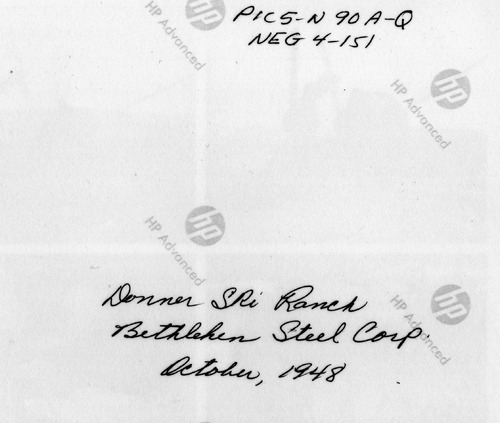 PICS-N 90 A-Q
NEG 4-151
hp
HP Advanced
hp
HP Advanced
hp
HP Advanced
hp
HP Advanced
Donner Ski Ranch
Bethlehen Steel Corp.
October, 1948